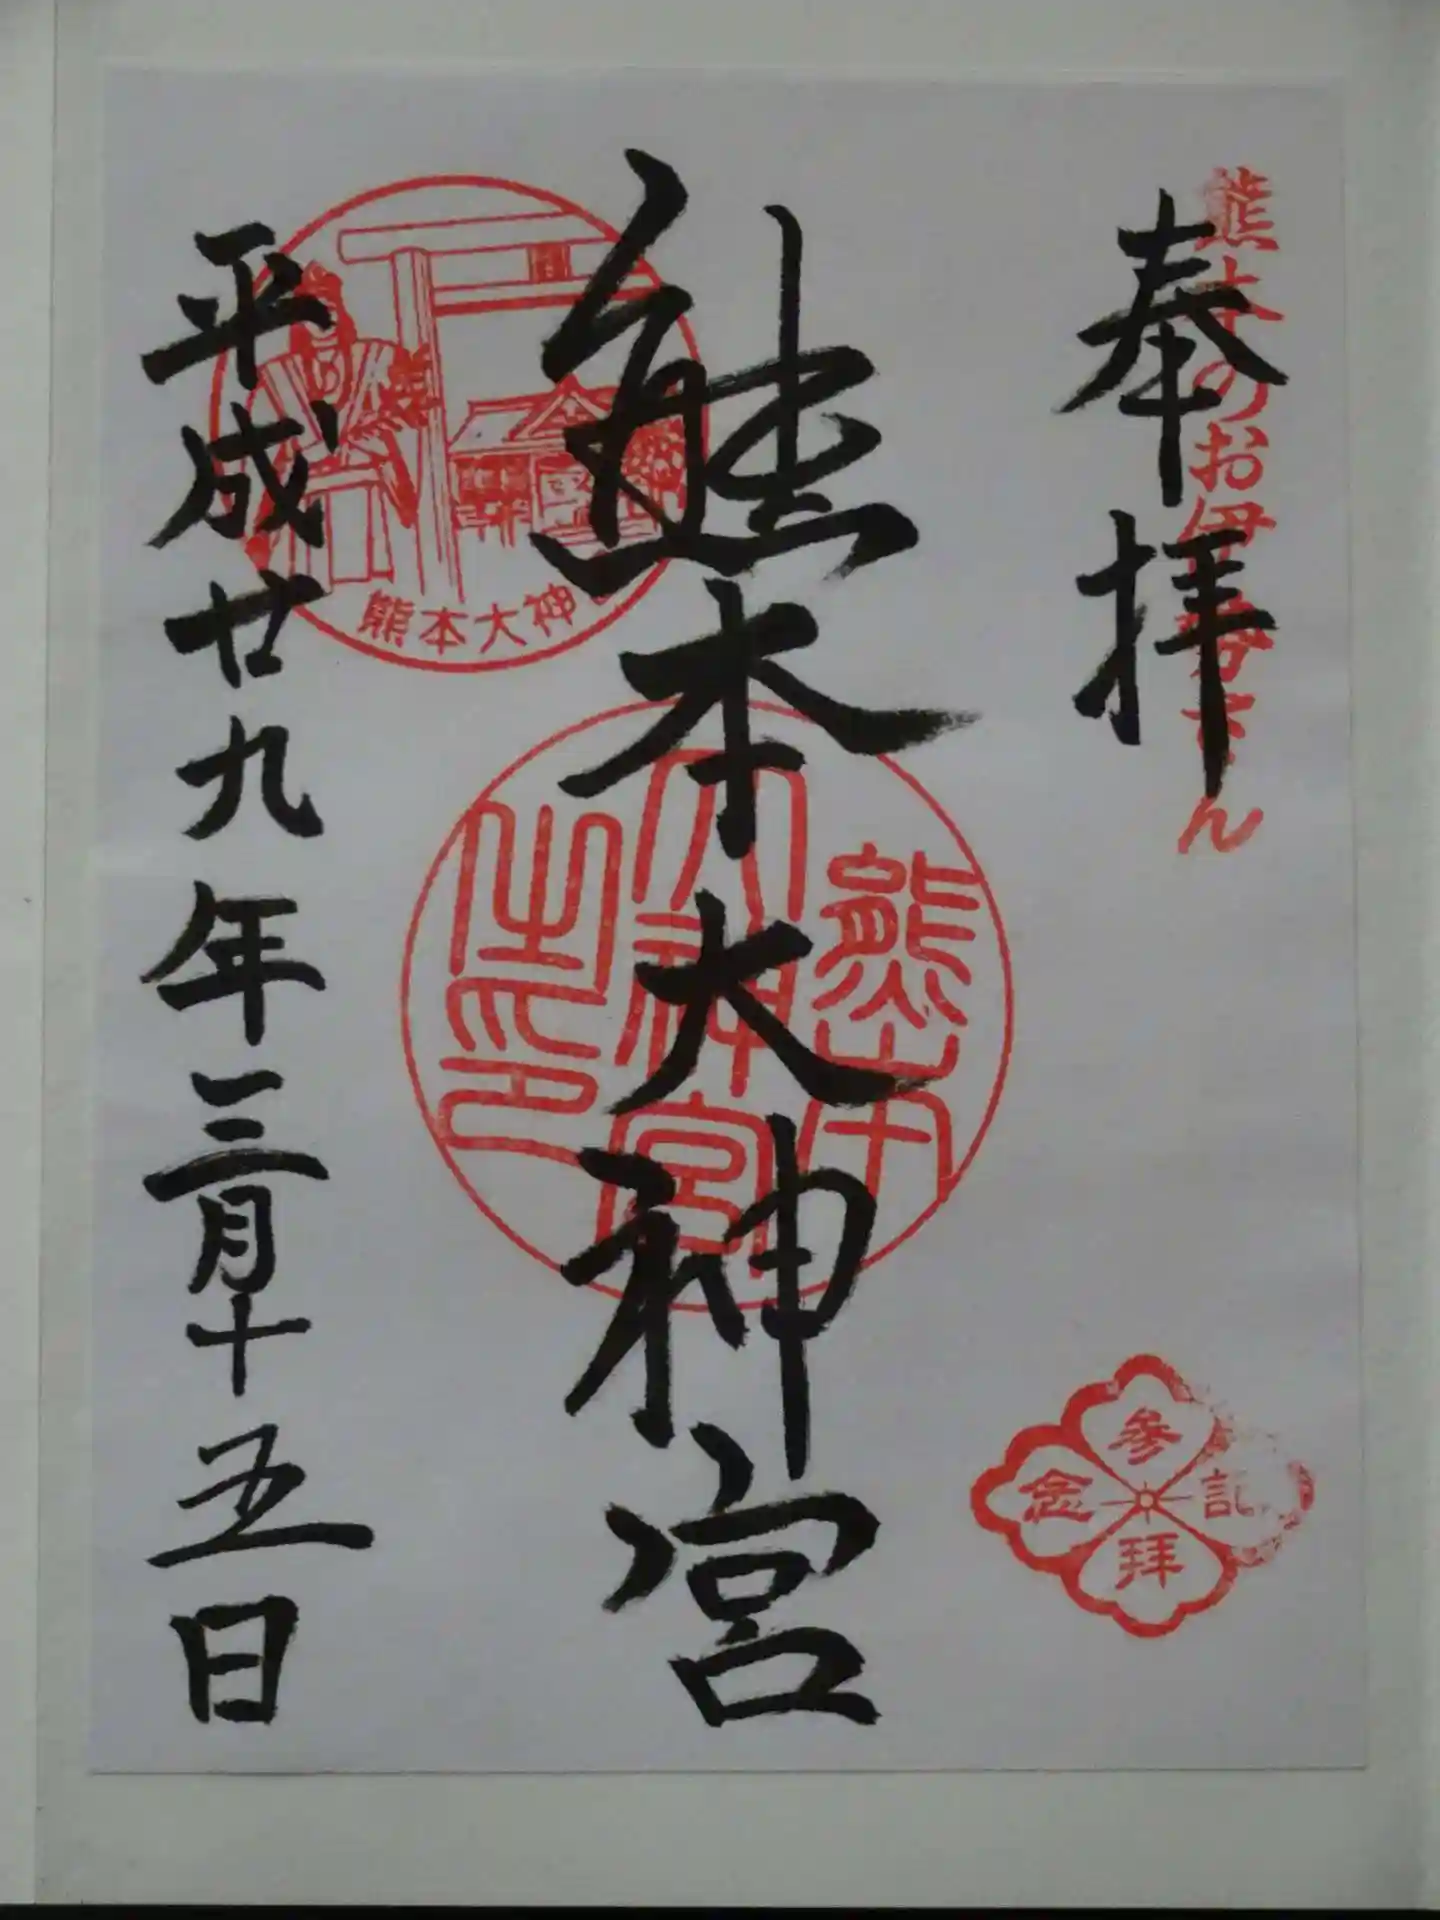 熊本のお伊勢さん
奉拝
熊本大神宮
平成廿九年三月十五日
熊本大神
熊本
大神宮
之印
参拝
記念